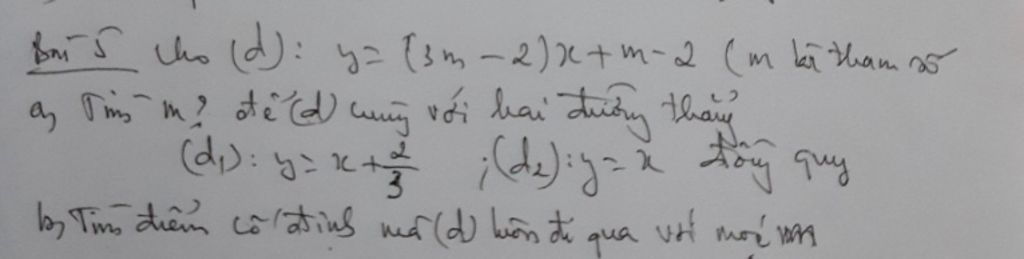 Bài 5 Cho (d): y = (3m - 2)x + m - 2 (m là tham số
a, Tìm m? để (d) cùng với hai đường thẳng
(d₁): y = x + 2/3 ; (d₂): y = x đồng quy
b, Tìm điểm cố định mà (d) luôn đi qua với mọi m